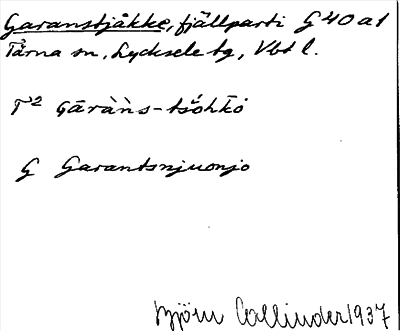 Garanstjåkke, fjällparti G 40 a1
Tärna sn, Lycksele tg, Vbt l.
T² Gāràǹs-tšŏhkŏ
G Garantsnjuonjo
Björn Collinder 1937